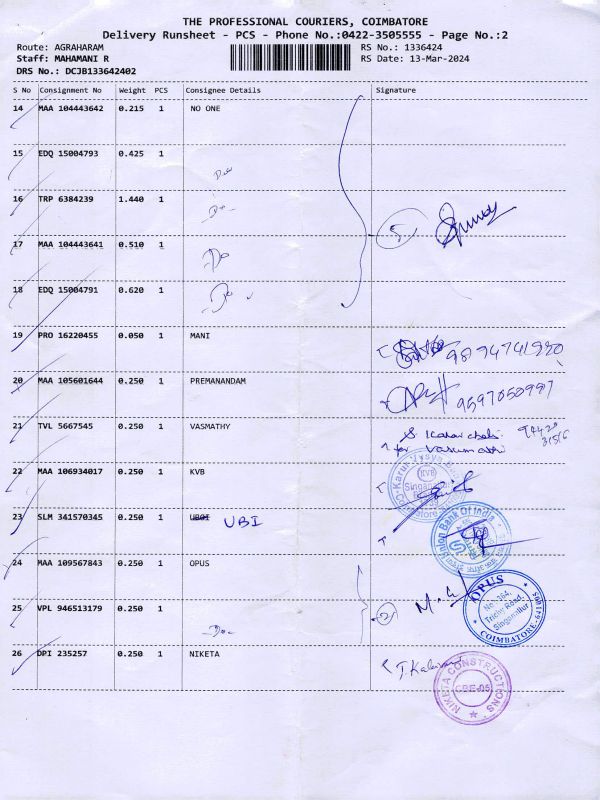 THE PROFESSIONAL COURIERS, COIMBATORE
Delivery Runsheet - PCS - Phone No.:0422-3505555 - Page No.:2
Route: AGRAHARAM RS No.: 1336424
Staff: MAHAMANI R RS Date: 13-Mar-2024
DRS No.: DCJB133642402
S No Consignment No Weight PCS Consignee Details Signature
14 MAA 104443642 0.215 1 NO ONE
15 EDQ 15004793 0.425 1 Do
16 TRP 6384239 1.440 1 Do
5
17 MAA 104443641 0.510 1 Do
18 EDQ 15004791 0.620 1 Do
19 PRO 16220455 0.050 1 MANI
20 MAA 105601644 0.250 1 PREMANANDAM 9597050997
21 TVL 5667545 0.250 1 VASMATHY
for Vasumathi
22 MAA 106934017 0.250 1 KVB
KVB
23 SLM 341570345 0.250 1 UBI UBI
Union Bank Of India
24 MAA 109567843 0.250 1 OPUS
OPUS
No. 364,
Trichy Road,
Singanallur
COIMBATORE-641005
25 VPL 946513179 0.250 1 Do 2
26 DPI 235257 0.250 1 NIKETA
NIKETA CONSTRUCTIONS
CBE-05